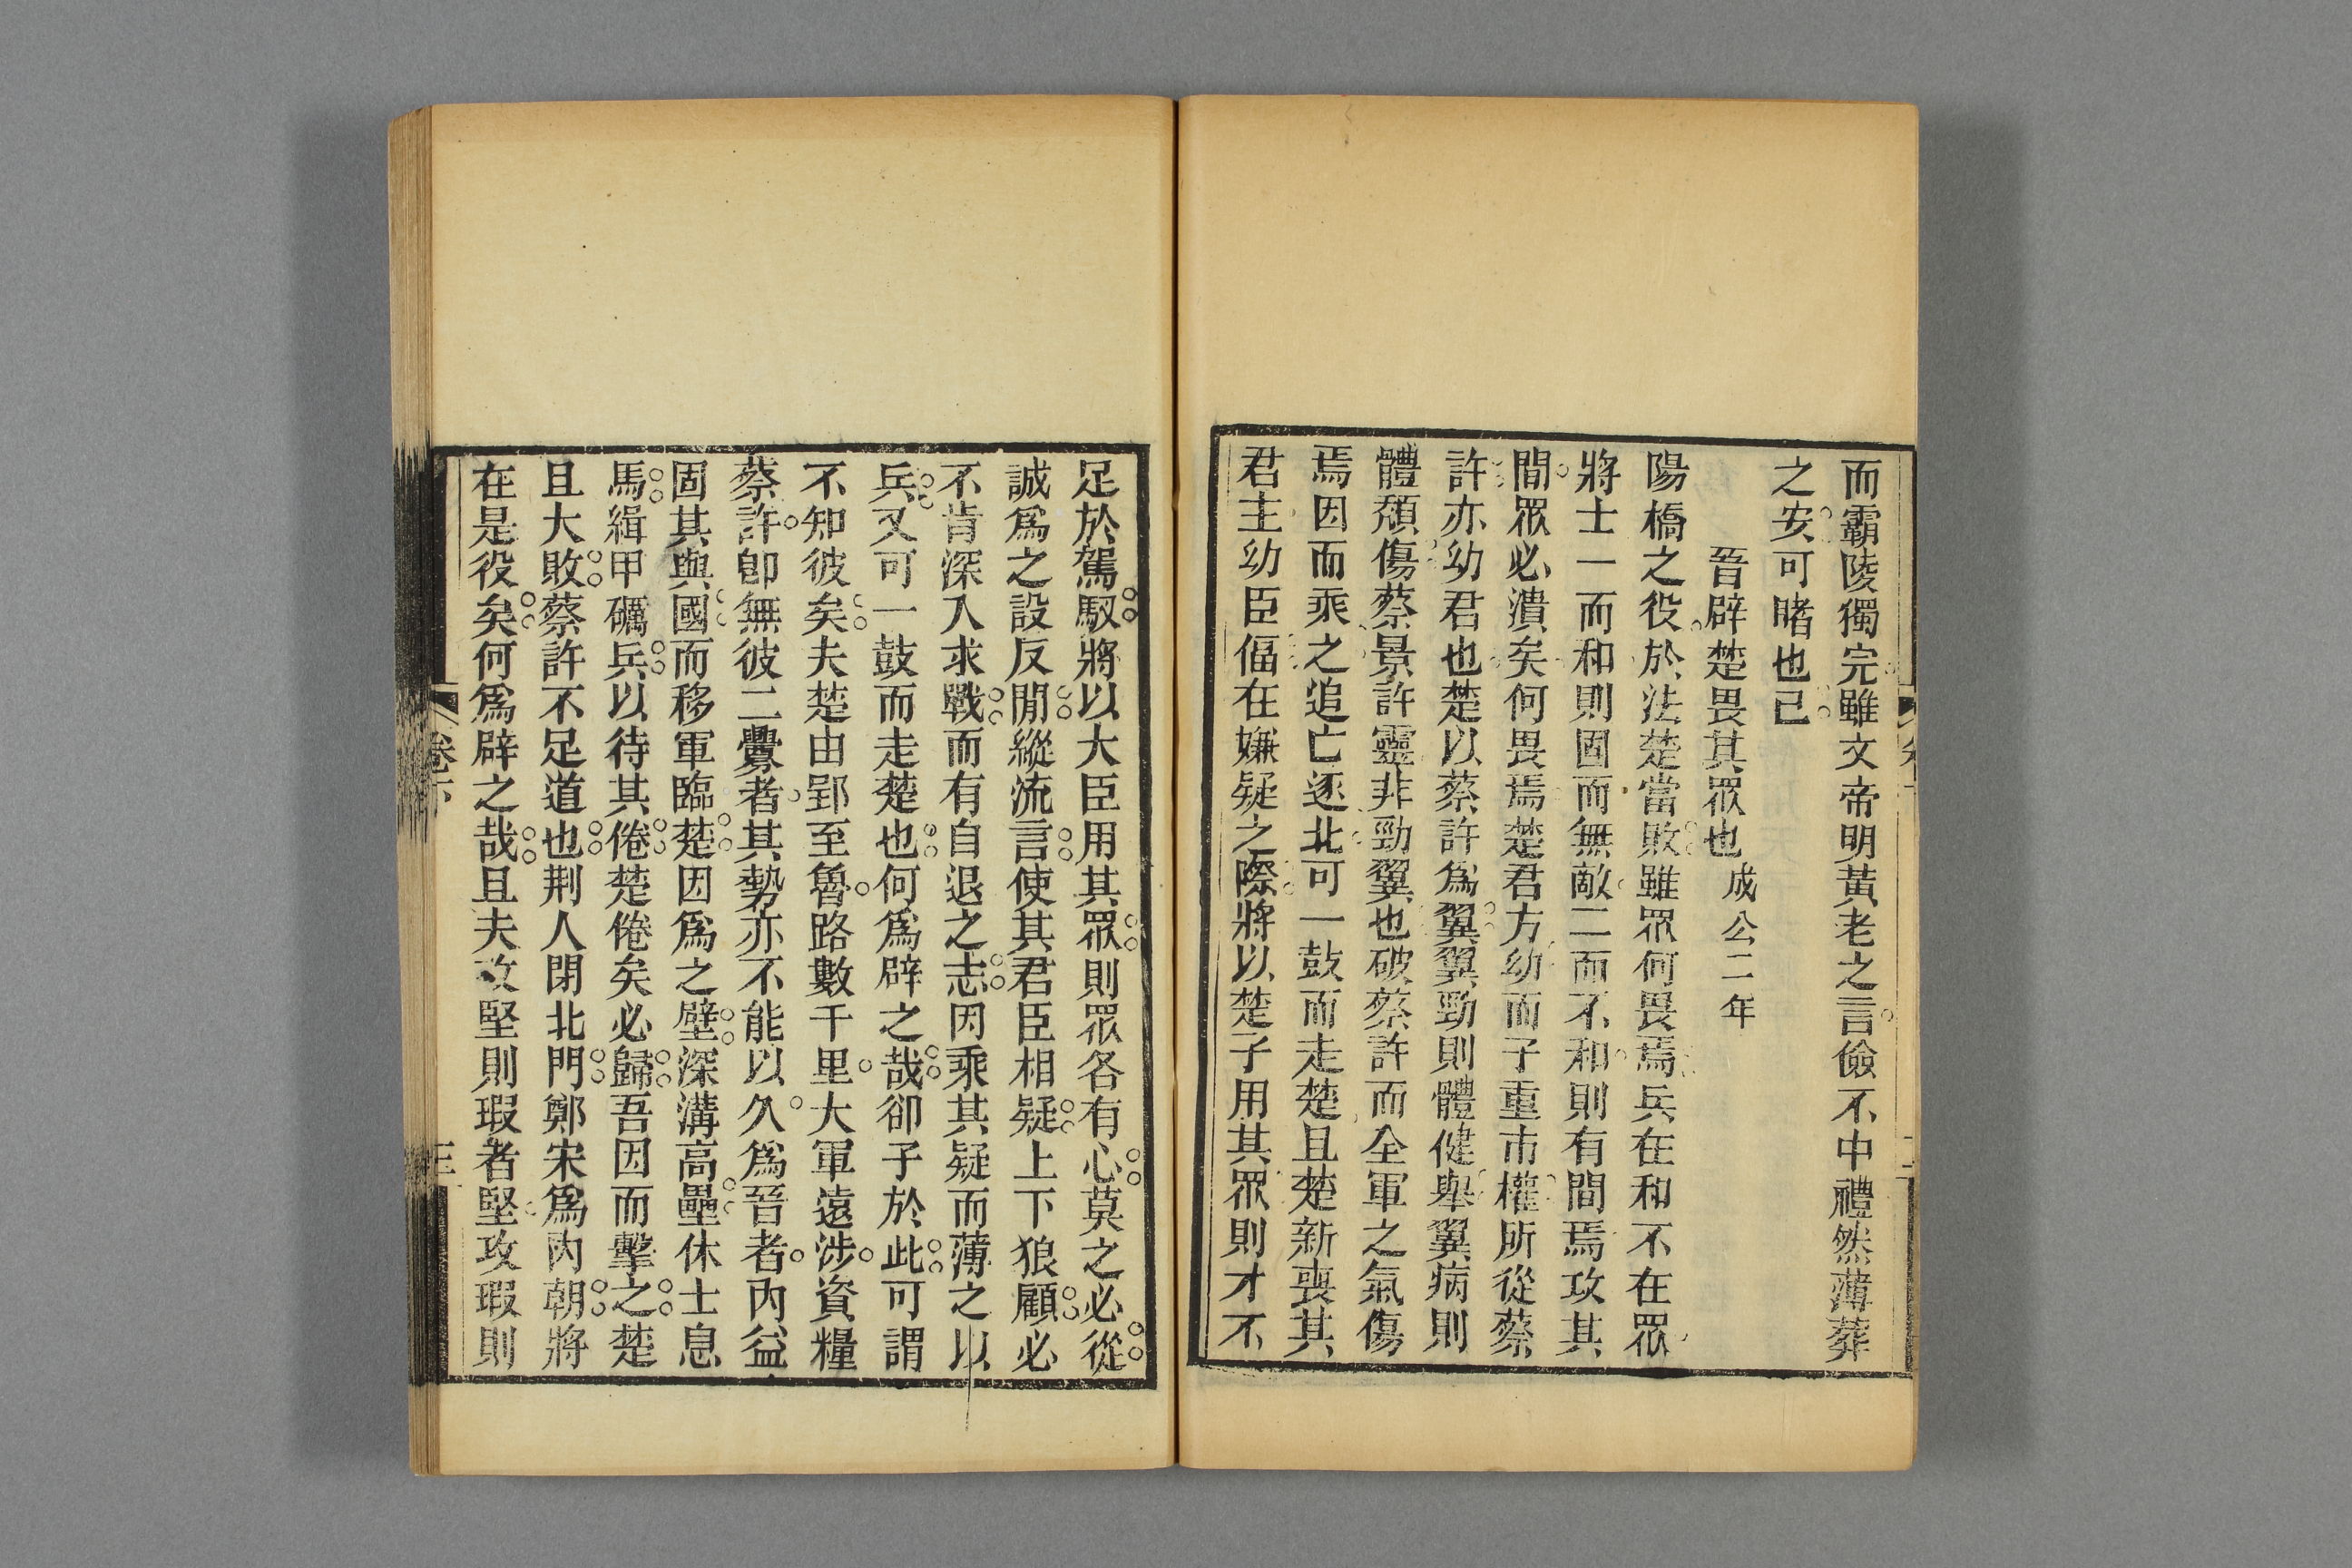 而霸陵獨完雖文帝明黃老之言儉不中禮然薄葬
之安可睹也已
晉辟楚畏其眾也成公二年
陽橋之役於法楚當敗雖眾何畏焉兵在和不在眾
將士一而和則固而無敵二而不和則有間焉攻其
間眾必潰矣何畏焉楚君方幼而子重市權所從蔡
許亦幼君也楚以蔡許為翼翼勁則體健舉翼病則
體頹傷蔡景許靈非勁翼也破蔡許而全軍之氣傷
焉因而乘之追亡逐北可一鼓而走楚且楚新喪其
君主幼臣偪在嫌疑之際將以楚子用其眾則才不
足於駕馭將以大臣用其眾則眾各有心莫之必從
誠爲之設反閒縱流言使其君臣相疑上下狼顧必
不肯深入求戰而有自退之志因乘其疑而薄之以
兵又可一鼓而走楚也何爲辟之哉卻子於此可謂
不知彼矣夫楚由郢至魯路數千里大軍遠涉資糧
蔡許卽無彼二釁者其勢亦不能以久爲晉者內益
固其與國而移軍臨楚因爲之壁深溝高壘休士息
馬緝甲礪兵以待其倦楚倦矣必歸吾因而擊之楚
且大敗蔡許不足道也荆人閉北門鄭宋爲內朝將
在是役矣何爲辟之哉且夫攻堅則瑕者堅攻瑕則
卷下